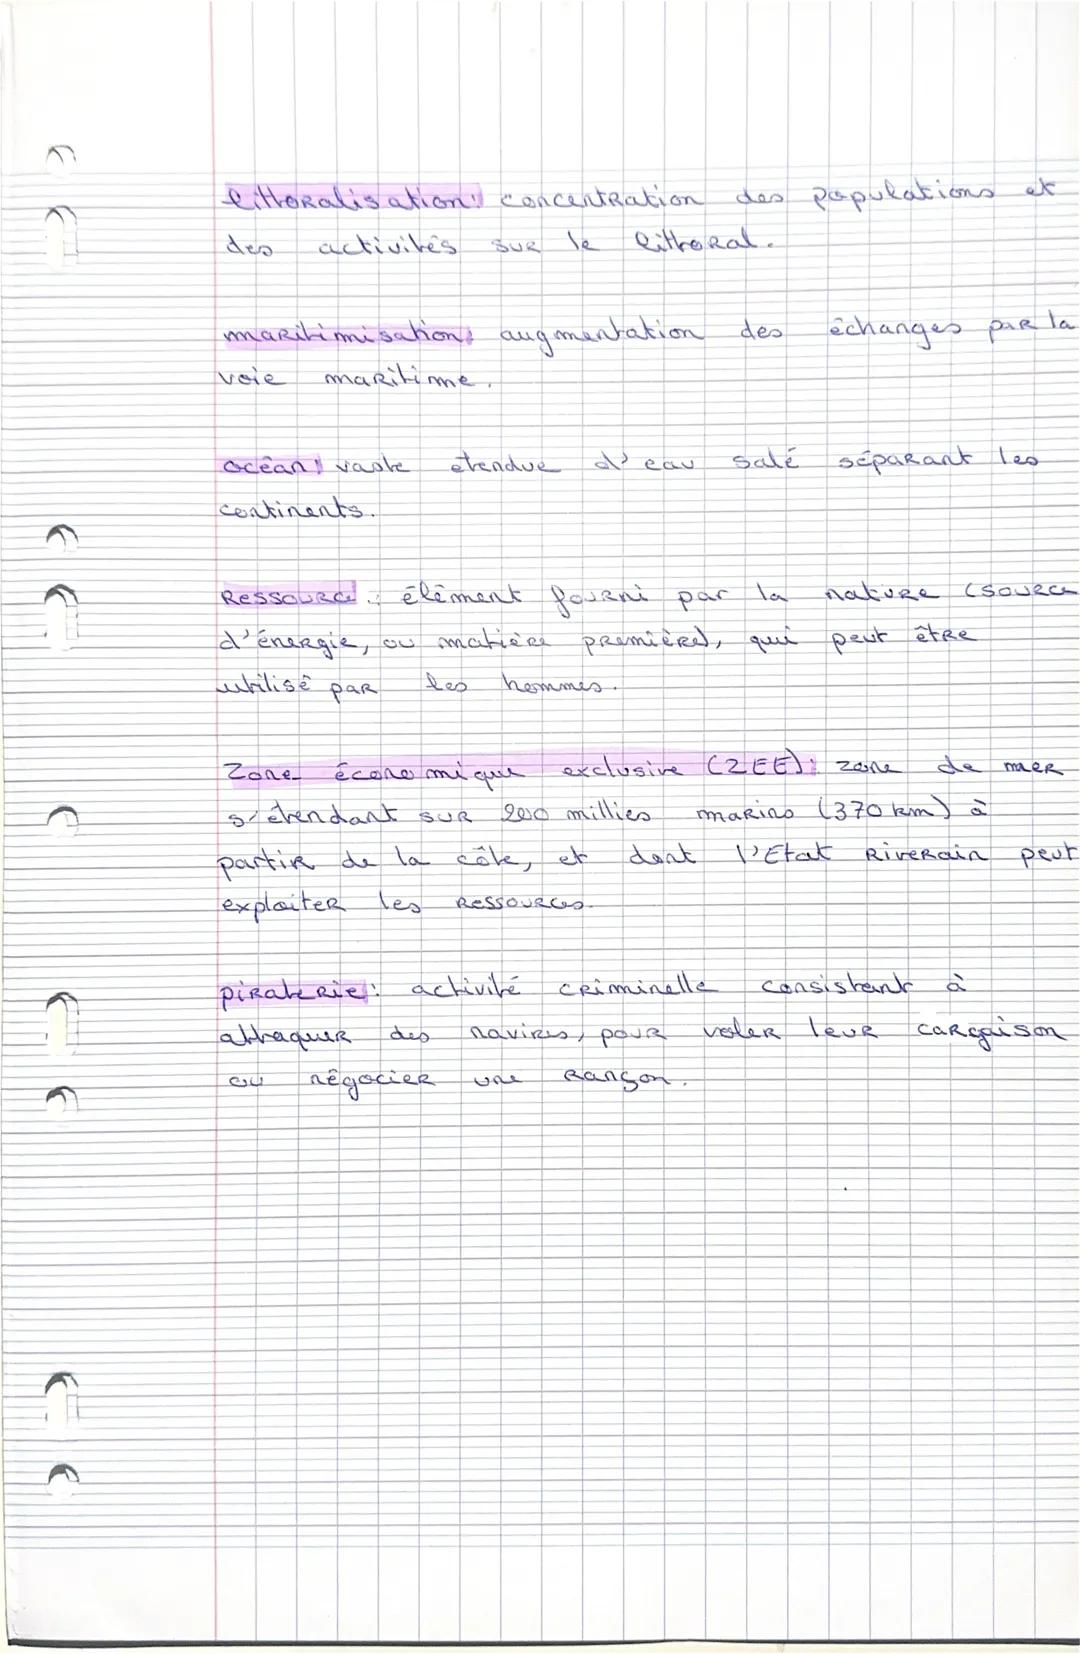 littoralisation: concentration des populations et
des activités sur le littoral.
maritimisation: augmentation des échanges par la
voie maritime.
océan: vaste étendue d'eau salé séparant les
continents.
Ressource: élément fourni par la nature (source
d'énergie, ou matière première), qui peut être
utilisé par les hommes.
Zone économique exclusive (ZEE): zone de mer
s'étendant sur 200 millies marins (370 km) à
partir de la côte, et dont l'Etat Riverain peut
exploiter les Ressources.
piraterie: activité criminelle consistant à
attaquer des navires, pour voler leur cargaison
ou négocier une Rançon.